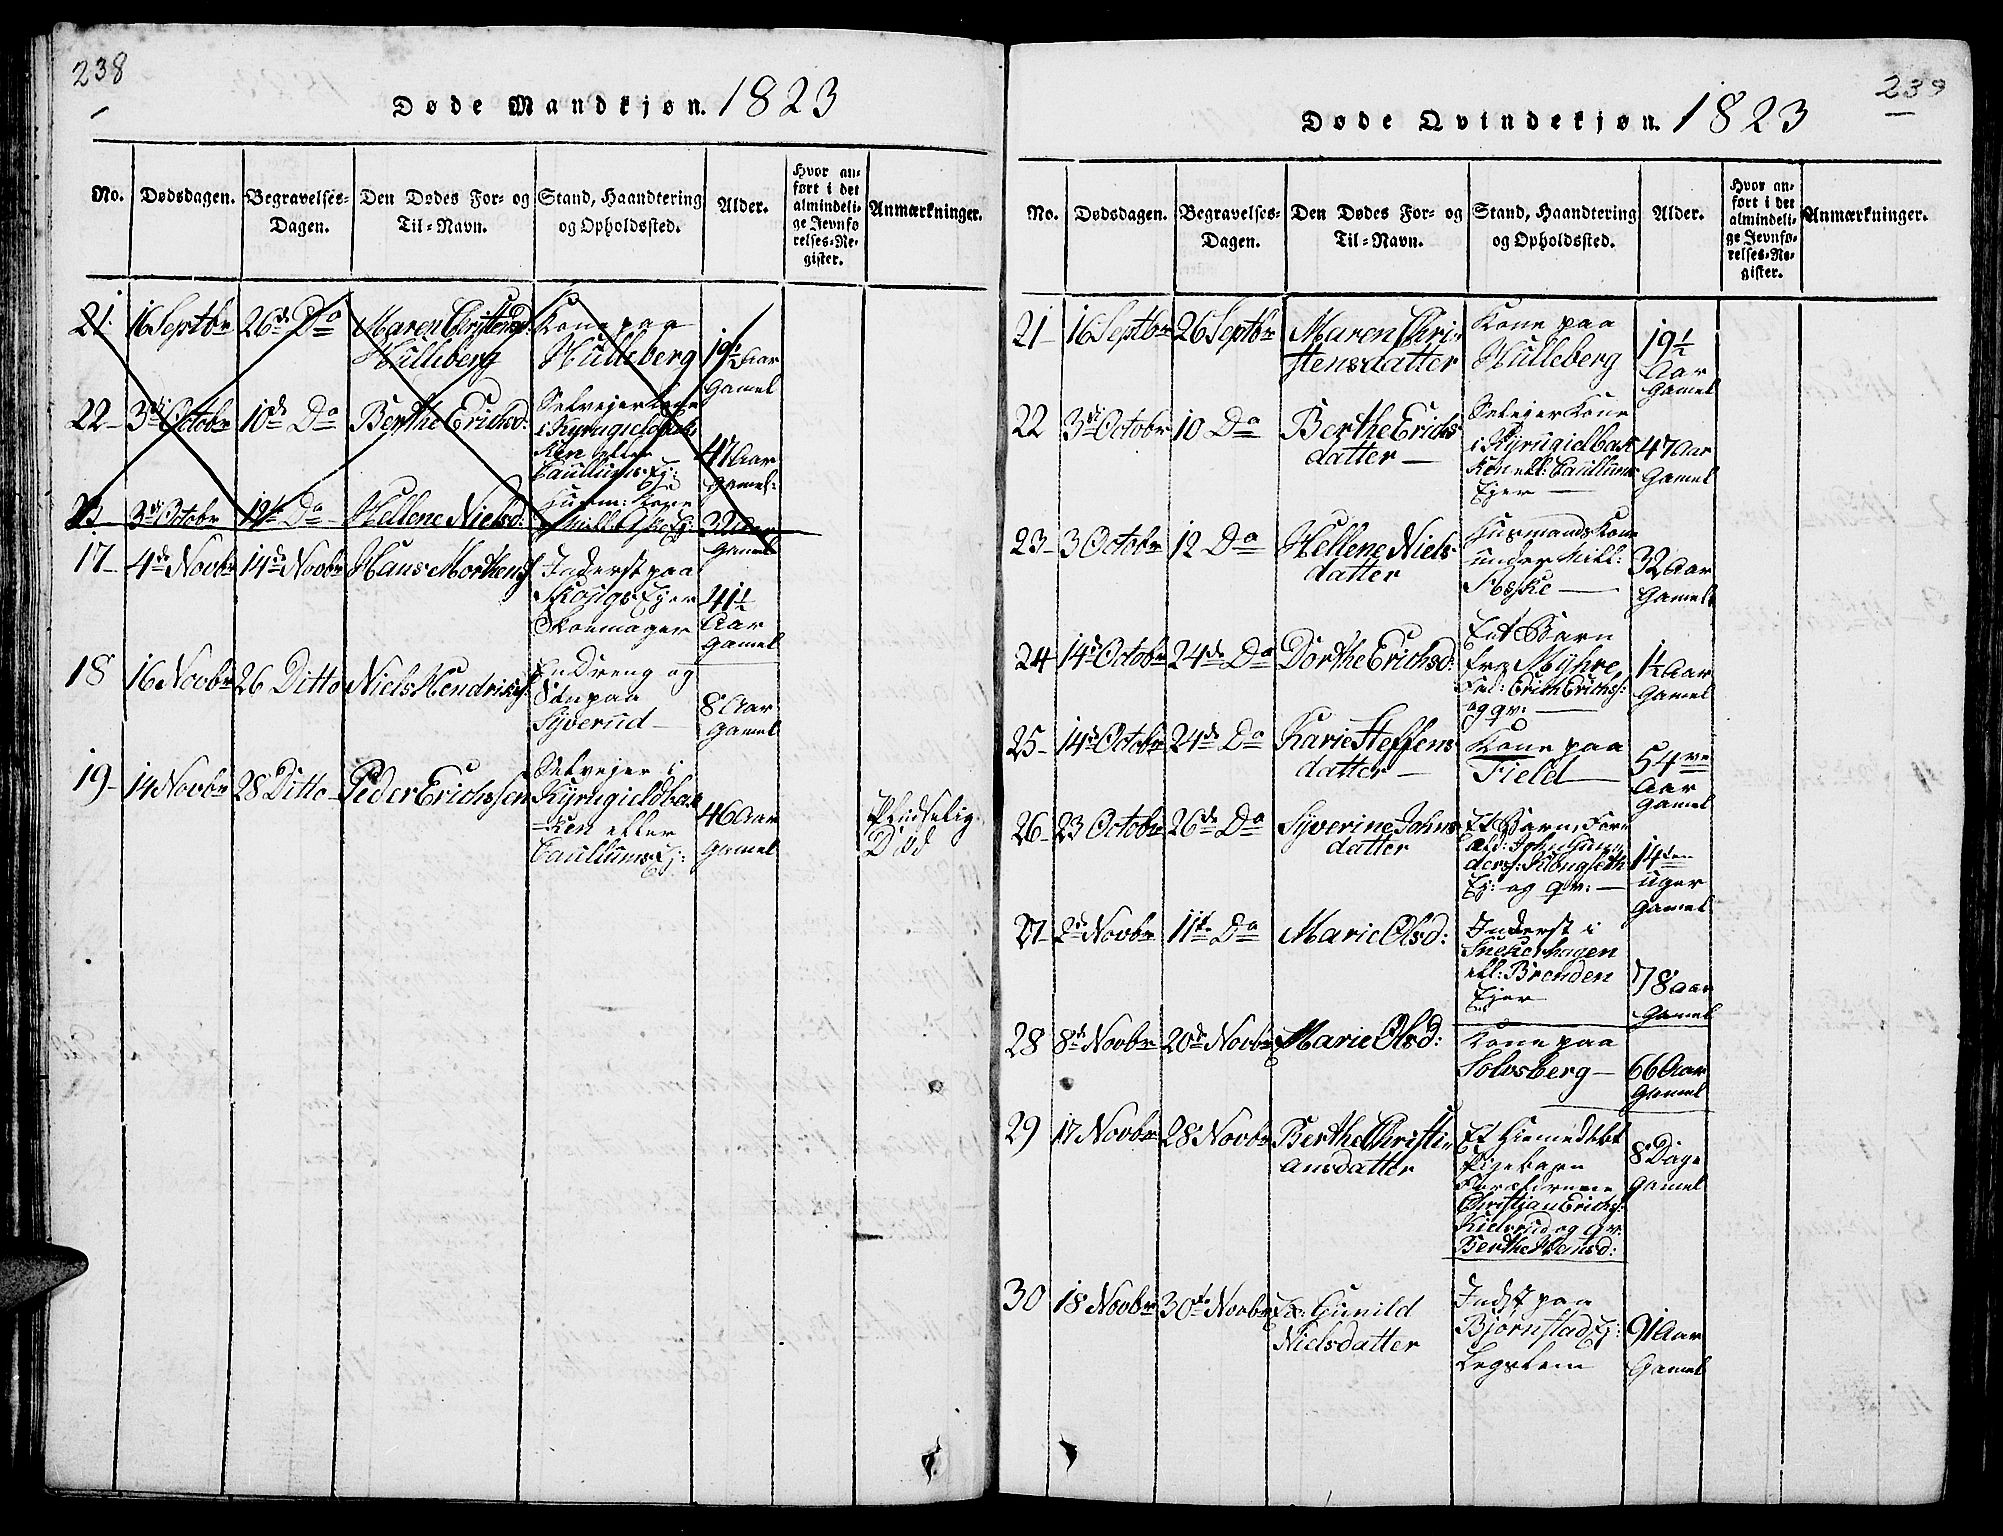 238
Døde Mandkjøn. 1823
No. Dødsdagen. Begravelses-Dagen. Den Dødes For- og Til-Navn. Stand, Haandtering og Opholdssted. Alder. Hvor anført i det almindelige Jevnførelses-Register. Anmærkninger.
21. 16 Septbr 26de Do Maren Christensd: Hulleberg Kone paa Hulleberg 19½ Aar Gamel
22 3di Octobr 10de Do Berthe Erichsd: Selvejer Kone i Kyrugieldbakken eller Caullums Ej: 47 Aar Gamel:
23 3di Octobr 12te Do Hellene Nielsd: Husm: Kone 32 Aar Gamel
17 4de Novbr 14de Novbr Hans Morthens: Inderst paa Skougs Ejer Skoemager 41½ Aar Gamel
18 16 Novbr 26 Ditto Niels Hendrichs: En Dreng og Søn paa Syverud 8 Aar Gamel
19 14 Novbr 28 Ditto Peder Erichssen Selvejer i Kyrugieldbakken efter Caullums Ej: 46 Aar Gamel Pludselig Død
239
Døde Qvindekjøn. 1823
No. Dødsdagen. Begravelses-Dagen. Den Dødes For- og Til-Navn. Stand, Haandtering og Opholdssted. Alder. Hvor anført i det almindelige Jevnførelses-Register. Anmærkninger.
21 16 Septbr 26 Septbr Maren Christensdatter Kone paa Hulleberg 19½ Aar Gamel
22 3di Octobr 10 Do Berthe Erichsdatter Selvejer Kone i Kyrugieldbakken ell: Caullums Ejer 47 Aar Gamel
23 3 Octobr 12 Do Hellene Nielsdatter Husmands Kone under Mill: Aske 32 Aar Gamel
24 14de Octobr 24de Do Dorthe Erichsd: Et Barn fra Myhre Fad: Erich Erichs: og qv: 1½ Aar Gamel
25 14de Octobr 24de Do Karie Steffensdatter Kone paa Field 54re Aar Gamel
26 23 Octobr 26de Do Syverine Johnsdatter Et Barn, Foræld: John Gunders: Klongseth Ej: og qv: 14den uger Gamel
27 2de Novbr 11te Do Marie Olsd: Inderst i Snekerhagen ell: Brenden Ejer 78 Aar Gamel
28 8de Novbr 20de Novbr Marie Olsd: Kone paa Solvsberg 66 Aar Gamel
29 17 Novbr 28 Novbr Berthe Christiansdatter Et Hiemedøbt Pigebarn Forældrene Christian Erichs: Kielsrud og qv: Berthe Hansd: 8 Dage Gamel
30 18 Novbr 30te Novbr Gunild Nielsdatter Indst paa Bjørnstad Ej: Legslem 91 Aar Gamel